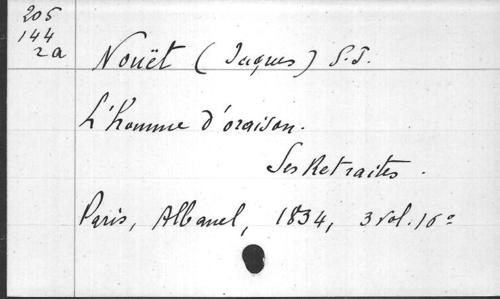 205
144
2a
Nouët (Jaques) S.J.
L'homme d'oraison.
Ses Retraites.
Paris, Albanel, 1834, 3 vol. 16°